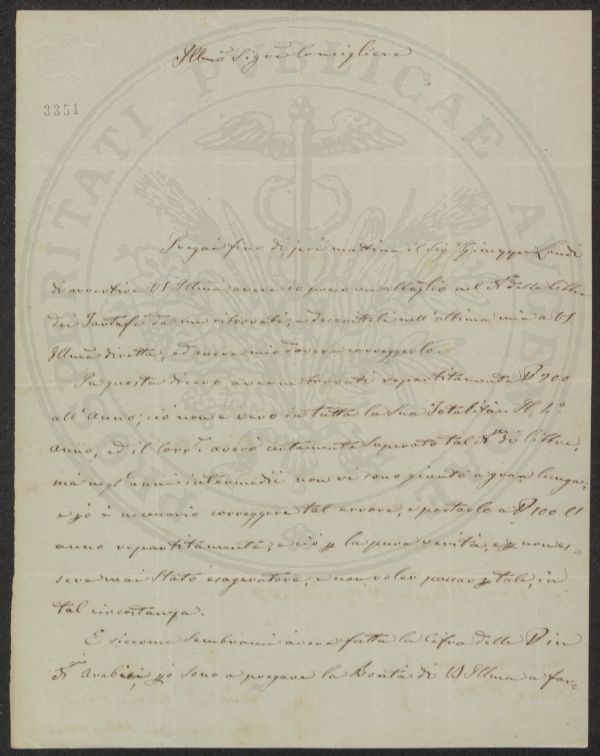 Illmo Sigre Consigliere
3351
PROSPERITATI PUBLICAE AUGENDAE
Pregai fino di jeri mattina il Sig. Giuseppe Landi
di avvertire VS Illma avere io preso un abbaglio nel No delle libbre
dei Tartufi da me ritrovati, e descrittili nell'ultima mia a VS
Illma diretta, ed essere mio dovere correggerlo.
In questa dicevo averne trovati repartitamente 200
all'Anno; ciò non è vero in tutta la sua Totalità. Il 1o
anno, ed il corrte averò certamente superato tal No di libbre,
mà negl'anni intermedii non vi sono giunto a gran lunga,
e è necessario correggere tal errore, e portarlo a 100 l'
anno repartitamente, e ciò p la pura verità, e p non es-
sere mai stato esageratore, e non voler passar p tale, in
tal circostanza.
E siccome sembrami avere fatta la cifra delle in
Ni Arabici, sono a pregare la Bontà di VS Illma a far-